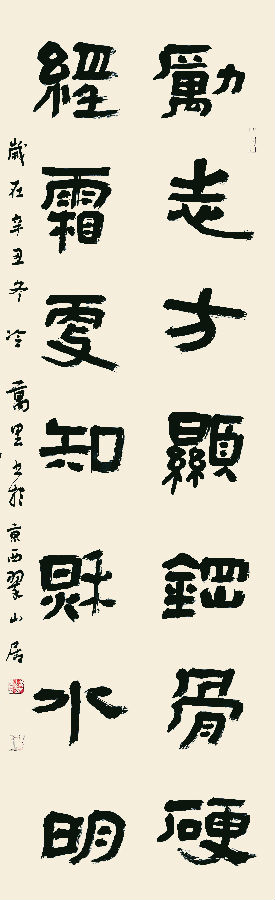 勵志方顯鋼骨硬
經霜更知秋水明
歲在辛丑冬冷 萬里書於京西翠山居